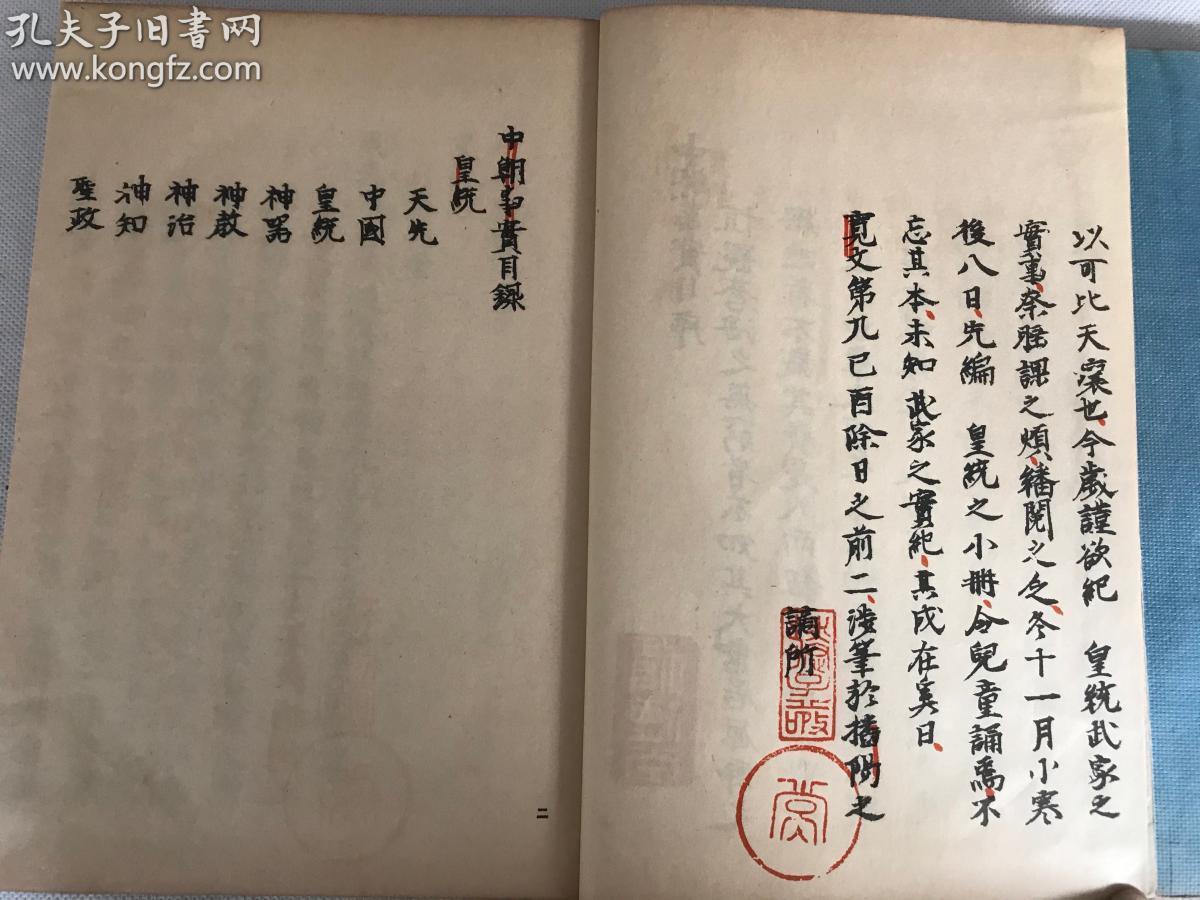 孔夫子旧书网
www.kongfz.com
以可比天壤也、今歲謹欲紀　皇統武家之
實事、奈睡課之煩、繙閱之乏、冬十一月小寒
後八日、先編　皇統之小冊、令兒童誦焉、不
忘其本、未知武家之實紀、其成在奚日、
寛文第九己酉除日之前二、渉筆於播陽之
謫所
中朝事實目録
皇統
天先
中國
皇統
神器
神教
神治
神知
聖政
二